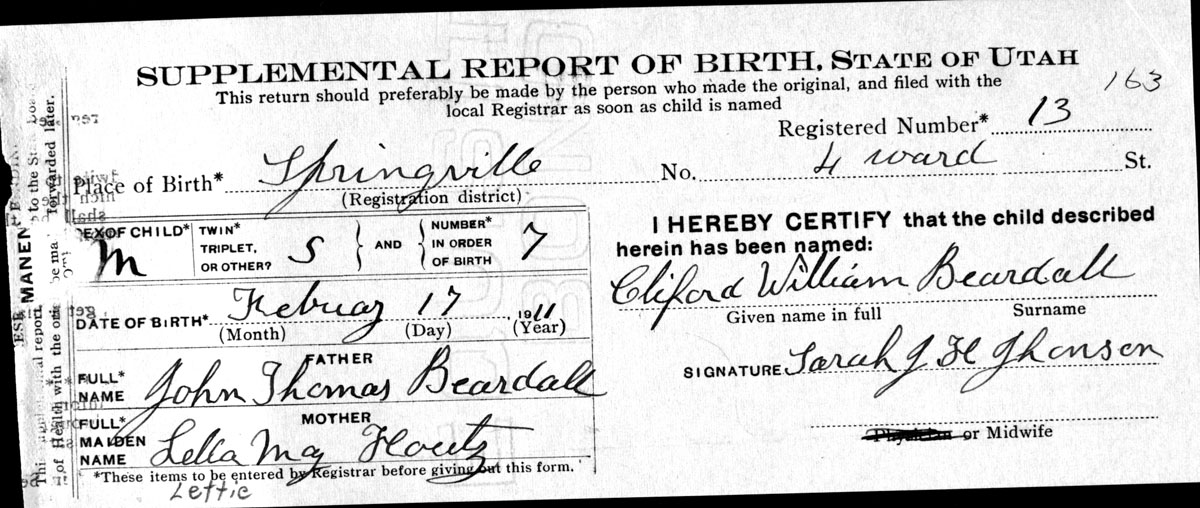 SUPPLEMENTAL REPORT OF BIRTH, STATE OF UTAH
163
This return should preferably be made by the person who made the original, and filed with the
local Registrar as soon as child is named
Registered Number* 13
Place of Birth* Springville No. 4 ward St.
(Registration district)
SEX OF CHILD* M TWIN* TRIPLET, OR OTHER? S AND NUMBER* IN ORDER OF BIRTH 7
DATE OF BIRTH* Februay 17 1911
(Month) (Day) (Year)
FATHER
FULL* NAME John Thomas Beardall
MOTHER
FULL* MAIDEN NAME Lella May Houtz
*These items to be entered by Registrar before giving out this form.
Lettie
I HEREBY CERTIFY that the child described
herein has been named:
Cliford William Beardall
Given name in full Surname
SIGNATURE Sarah J H Jhonson
Physician or Midwife
MANEN
to the S
forwarded later.
al report
of Health with the